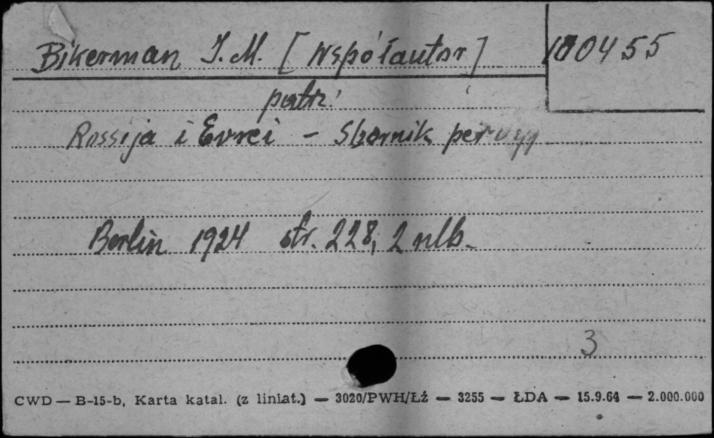 Bikerman I. M. [Współautor] 100455
patrz:
Rossija i Evrei - Sbornik pervyj
Berlin 1924 str. 228, 2 nlb.
3
CWD — B-15-b, Karta katal. (z liniat.) — 3020/PWH/Łź — 3255 — ŁDA — 15.9.64 — 2.000.000